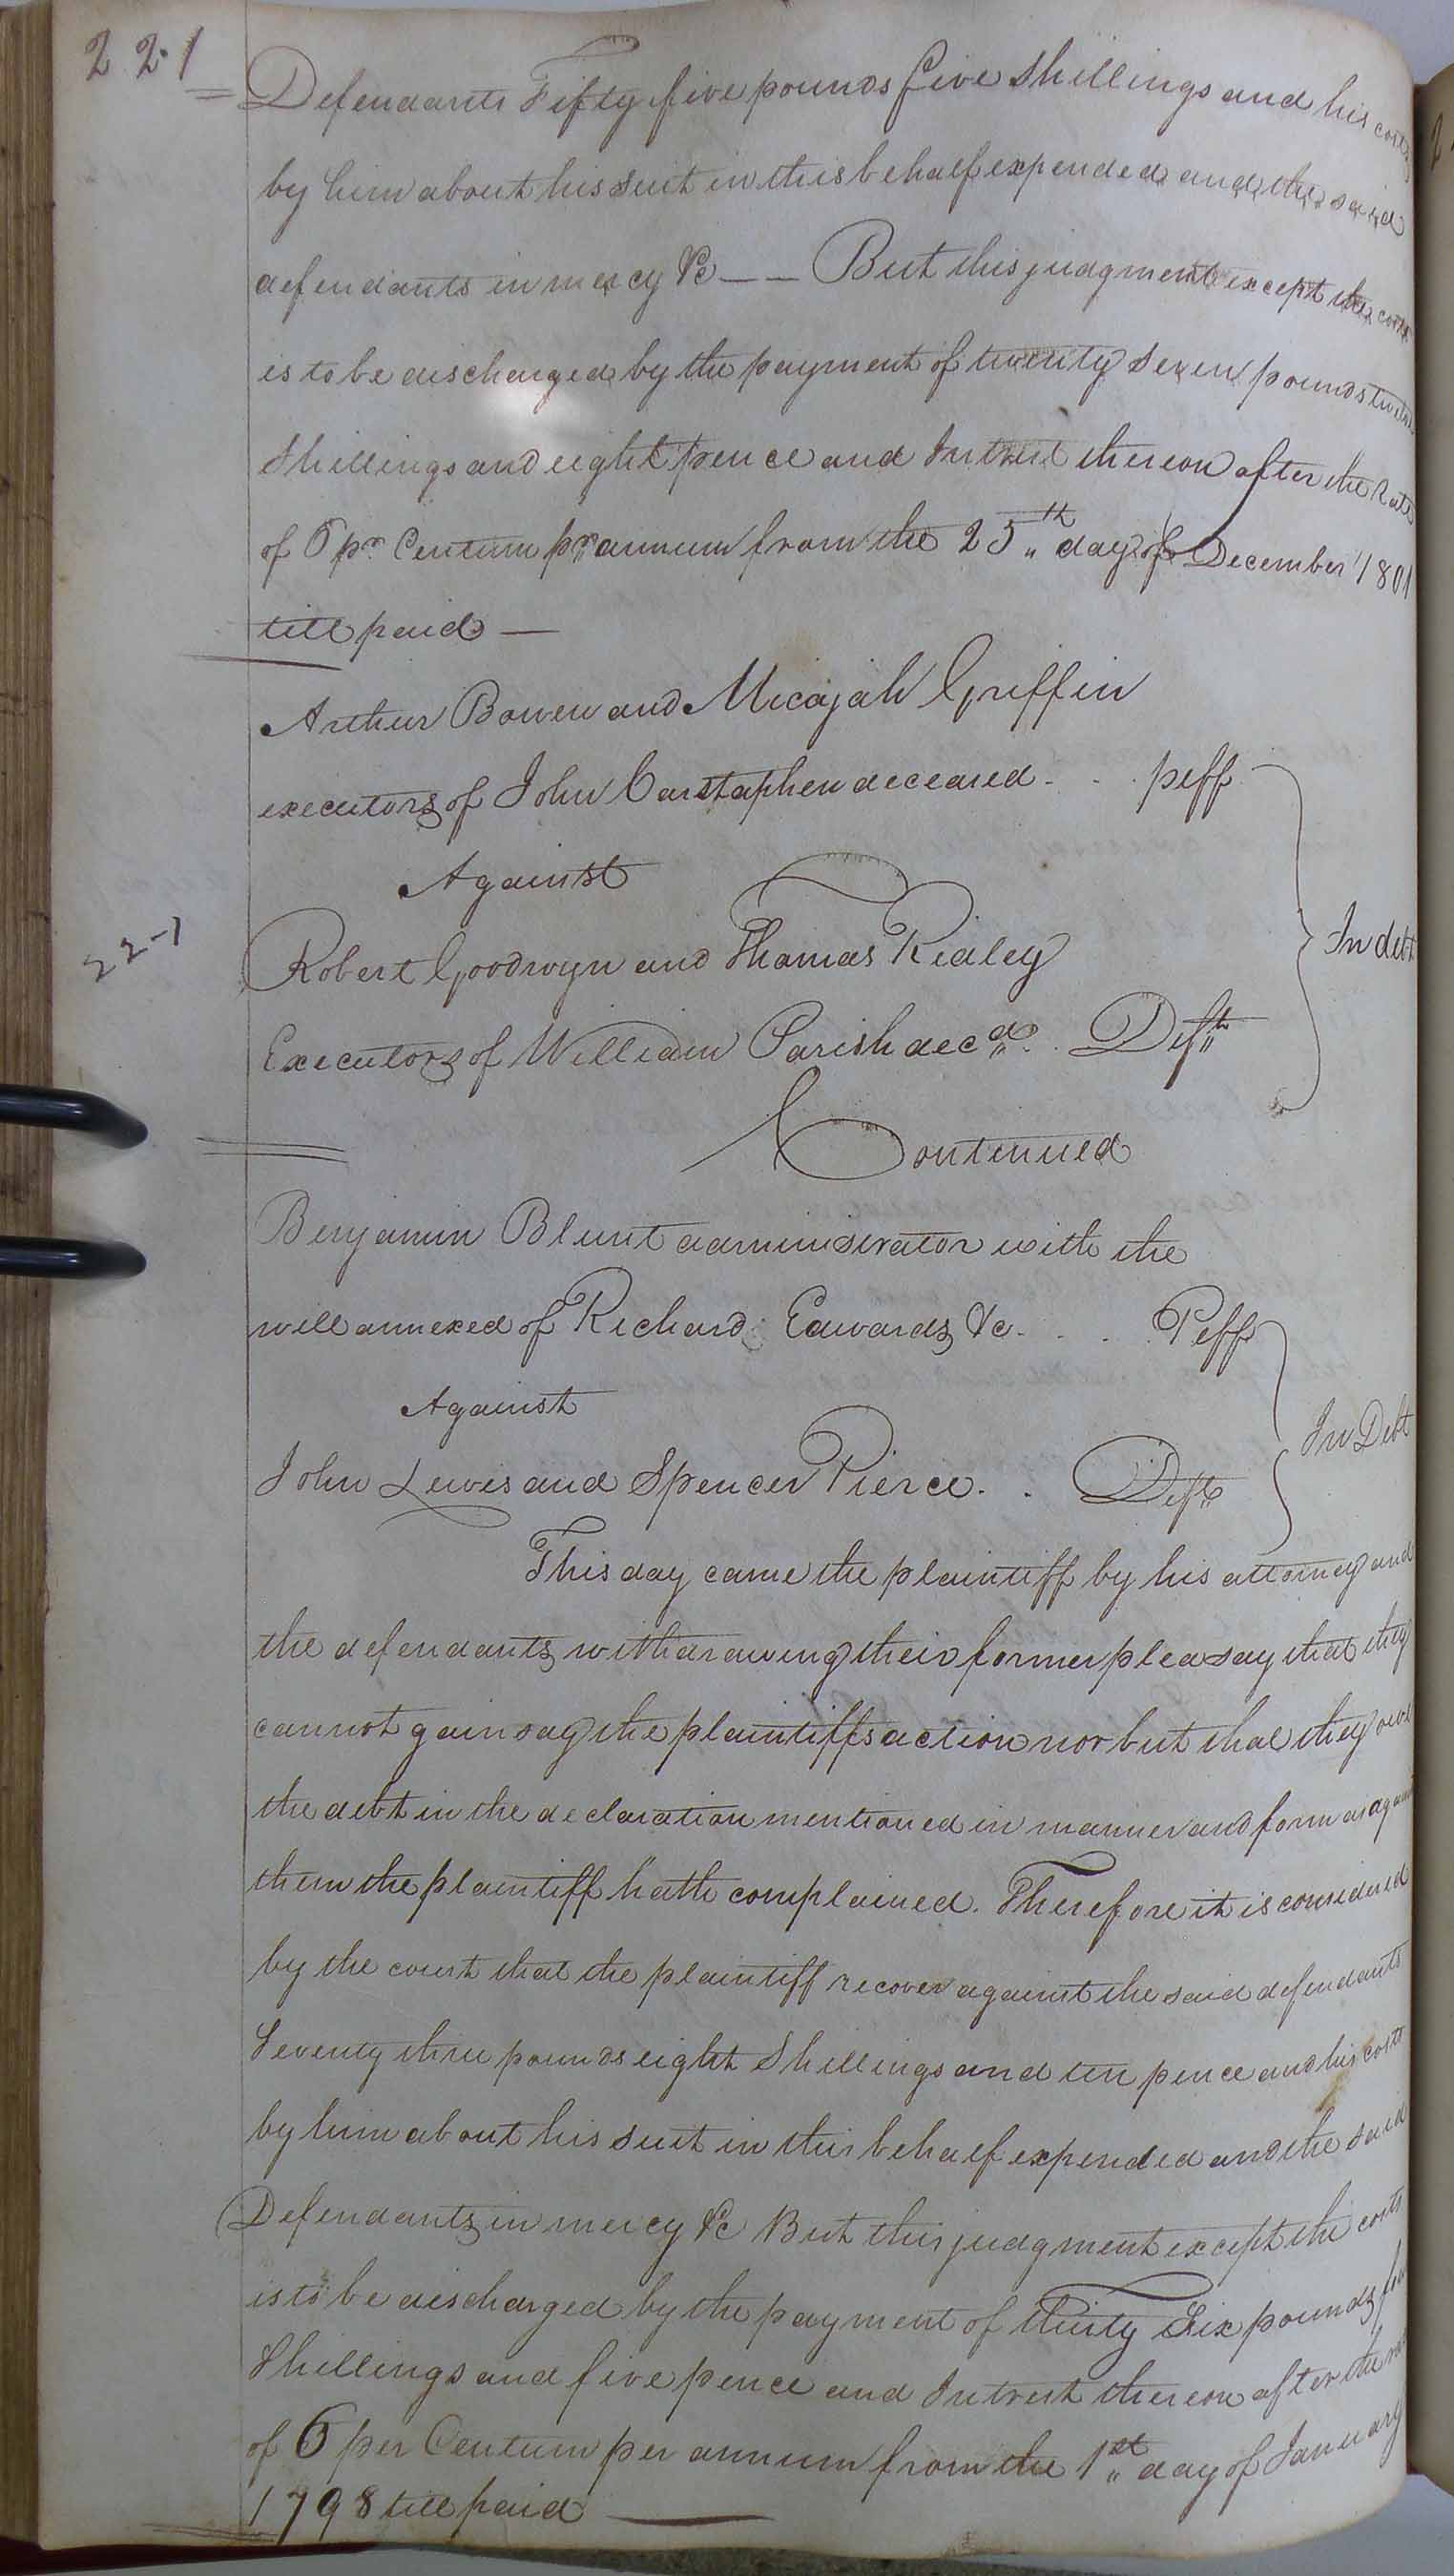 221
Defendants Fifty five pounds five Shillings and his costs
by him about his suit in this behalf expended and the said
defendants in mercy &c — — But this judgment except the costs
is to be discharged by the payment of twenty seven pounds twelve
Shillings and eight pence and Intrest thereon after the Rate
of 6 pr. Centum pr. annum from the 25th day of December 1801
till paid —
Arthur Bowen and Micajah Griffin
executors of John Carstaphen deceased . . . peff
Against
22-1
In debt
Robert Goodwyn and Thomas Ridley
Executors of William Parish decd. . Defts
Continued
Benjamin Blunt administrator with the
will annexed of Richard Edwards &c. . . . Peff
Against
In Debt
John Lewis and Spencer Pierce. . Defts
This day came the plaintiff by his attorney and
the defendants withdrawing their former plea say that they
cannot gainsay the plaintiffs action nor but that they owe
the debt in the declaration mentioned in manner and form as against
them the plaintiff hath complained. Therefore it is considered
by the court that the plaintiff recover against the said defendants
Seventy three pounds eight Shillings and ten pence and his costs
by him about his suit in this behalf expended and the said
Defendants in mercy &c But this judgment except the costs
is to be discharged by the payment of thirty Six pounds
Shillings and five pence and Intrest thereon after the rate
of 6 per Centum per annum from the 1st day of January
1798 till paid —